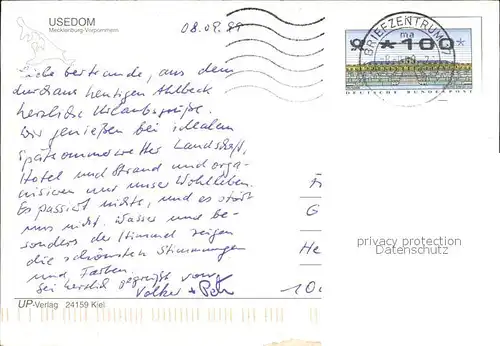 USEDOM
Mecklenburg-Vorpommern
08.09.99
Liebe bertraude, aus dem
durchaus heutigen Ahlbeck
herzliche Urlaubsgrüße.
Wir genießen bei idealem
Spätsommerwetter Landschaft,
Hotel und Strand und orga-
nisieren nur unser Wohlleben.
Es passiert nichts, und es stört
uns nicht. Wasser und be-
sonders der Himmel zeigen
die schönsten Stimmungen
und Farben.
Sei herzlich gegrüßt von
Volker +
UP-Verlag 24159 Kiel
BRIEFZENTRUM 17
ma
*100*
DEUTSCHE BUNDESPOST
F
G
He
10
privacy protection
Datenschutz